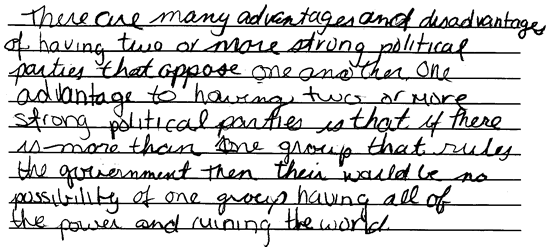 There are many advantages and disadvantages
of having two or more strong political
parties that oppose one another. One
advantage to having two or more
strong political parties is that if there
is more than one group that rules
the government then their would be no
possibility of one group having all of
the power and ruining the world.